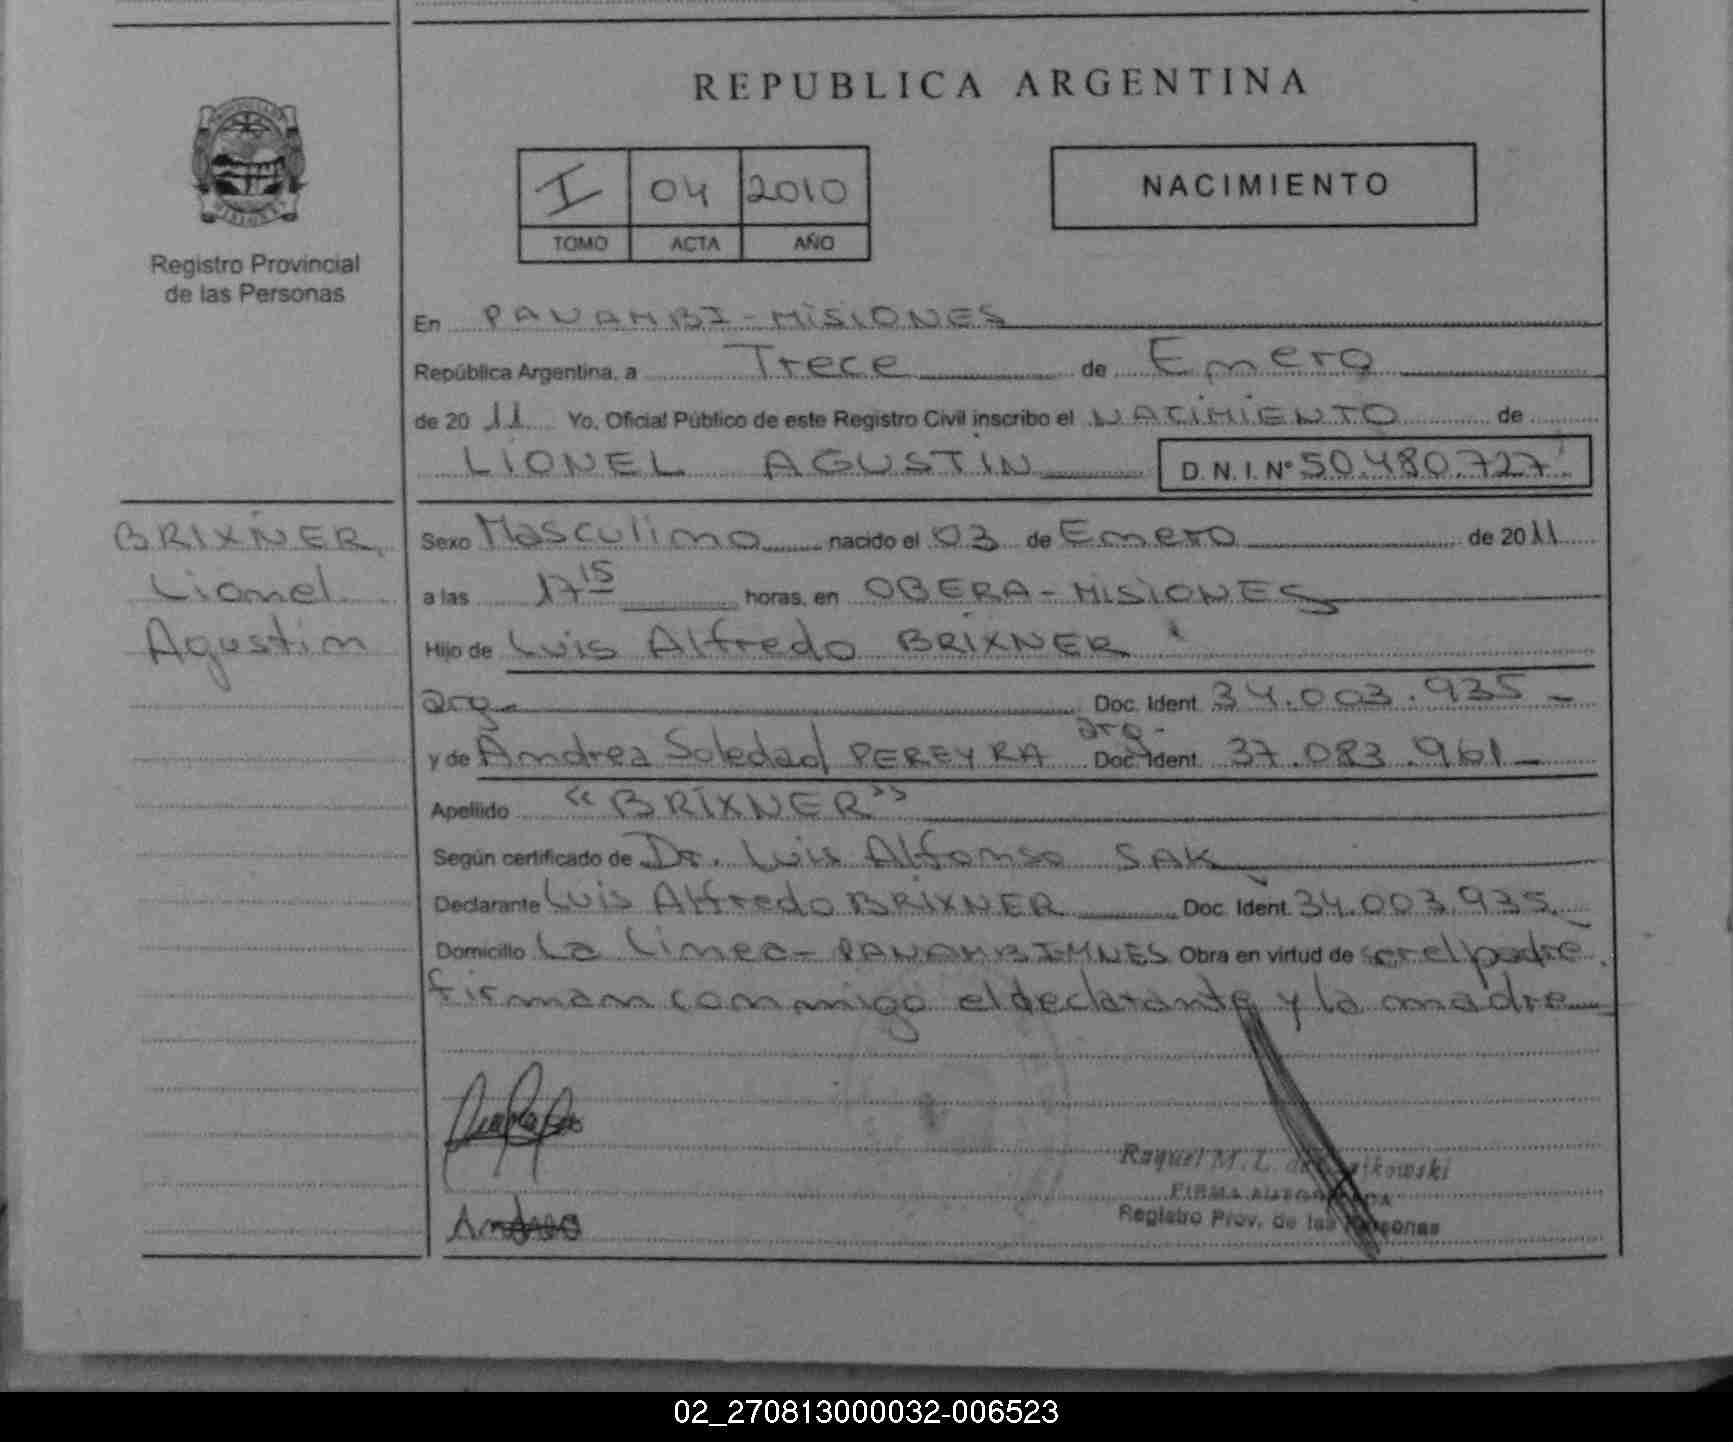 REPUBLICA ARGENTINA
I 04 2010
TOMO ACTA AÑO
NACIMIENTO
Registro Provincial
de las Personas
En PANAMBI - MISIONES
República Argentina, a Trece de Enero
de 20 11 Yo, Oficial Público de este Registro Civil inscribo el NACIMIENTO de
LIONEL AGUSTIN D. N. I. N° 50.480.727
BRIXNER,
Lionel
Agustin
Sexo Masculino nacido el 03 de Enero de 20 11
a las 17 15 horas, en OBERA - MISIONES
Hijo de Luis Alfredo BRIXNER
arg. Doc. Ident. 34.003.935 -
arg.
y de Andrea Soledad PEREYRA Doc. Ident. 37.083.961 -
Apellido "BRIXNER"
Según certificado de Dr. Luis Alfonso SAK
Declarante Luis Alfredo BRIXNER Doc. Ident. 34.003.935.
Domicilio La Linea - PANAMBI-MNES Obra en virtud de ser el padre.
firman conmigo el declarante y la madre
Andrea
Raquel M. L. de
FIRMA
Registro Prov. de las Personas
02_270813000032-006523